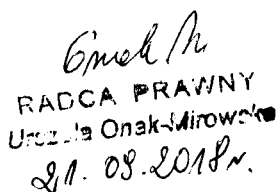 RADCA PRAWNY
Urszula Onak-Mirowska
21.09.2018r.